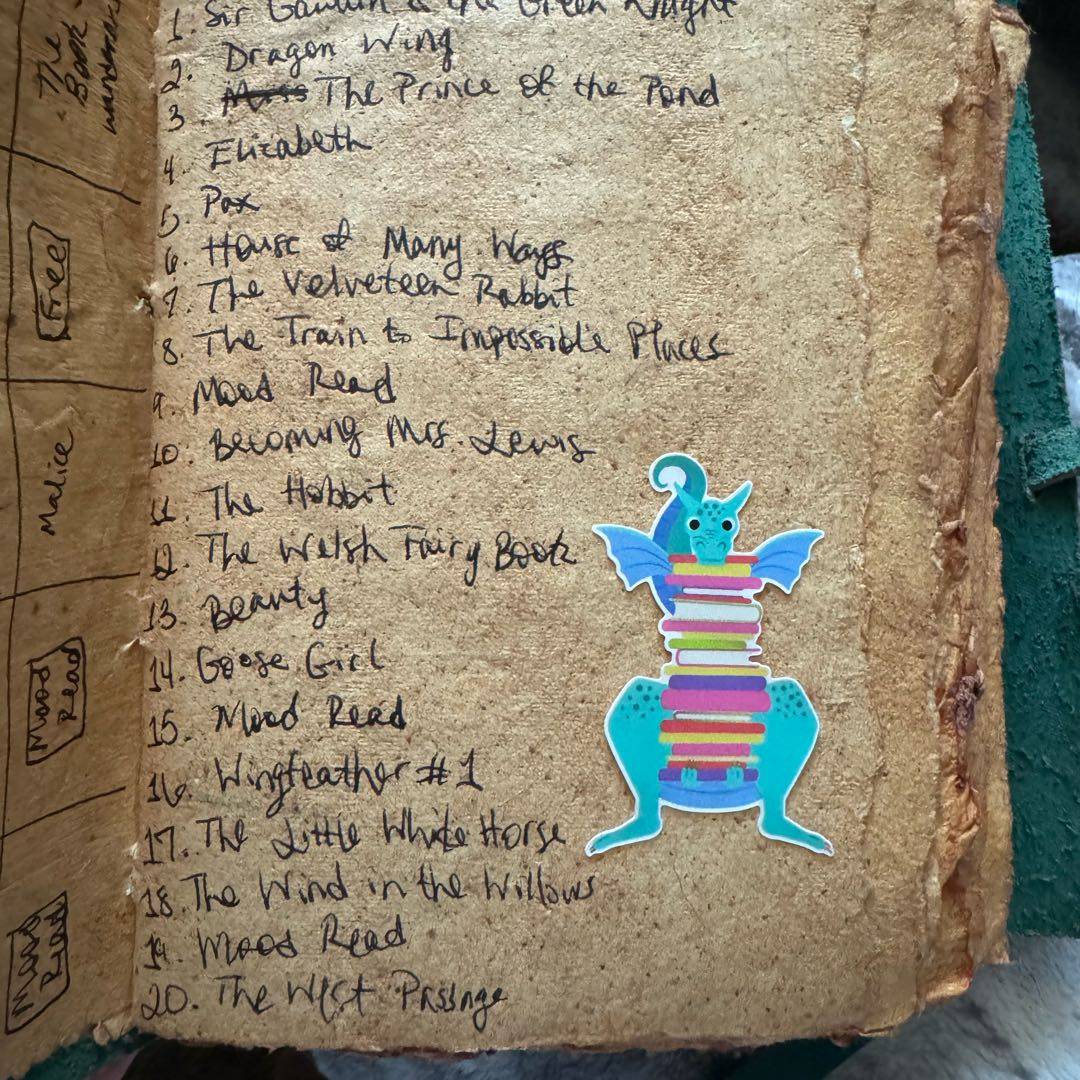 The
Book
Free
Malice
Mood
Read
Mood
Read
1. Sir Gawain & the Green Knight
2. Dragon Wing
3. Miss The Prince of the Pond
4. Elizabeth
5. Pax
6. House of Many Ways
7. The Velveteen Rabbit
8. The Train to Impossible Places
9. Mood Read
10. Becoming Mrs. Lewis
11. The Hobbit
12. The Welsh Fairy Book
13. Beauty
14. Goose Girl
15. Mood Read
16. Wingfeather #1
17. The Little White Horse
18. The Wind in the Willows
19. Mood Read
20. The West Passage